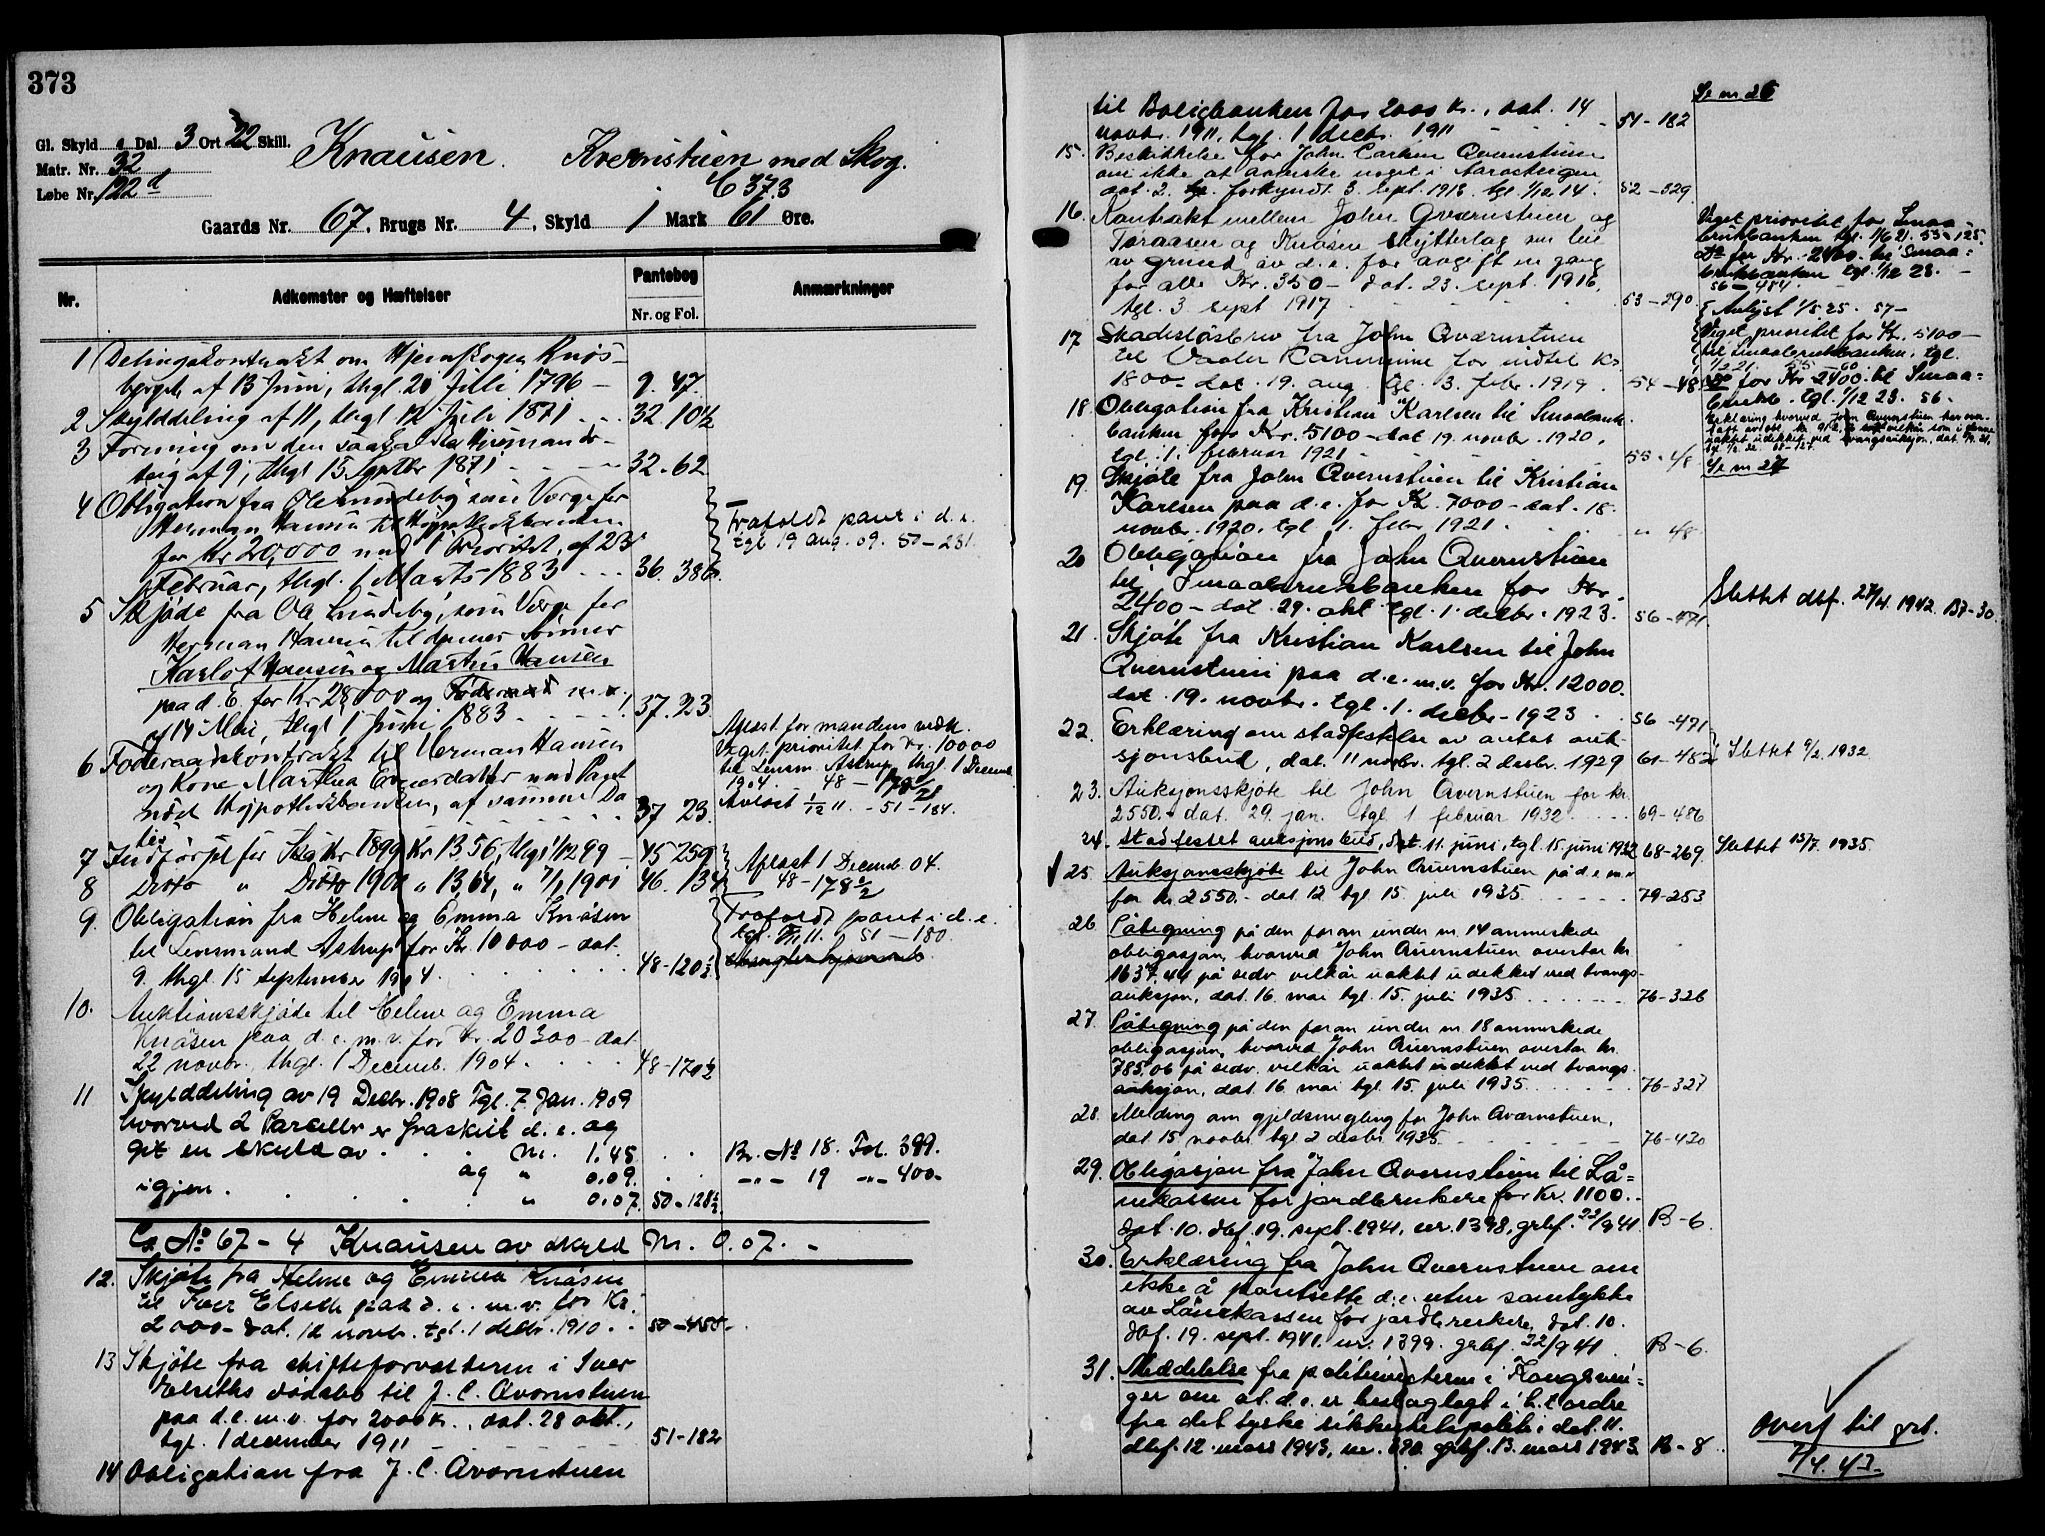 373
Gl. Skyld 1 Dal. 3 Ort 22 Skill.
Matr. Nr. 32
Løbe Nr. 122 d
Knausen. Kvernstuen med Skog.
C 373
Gaards Nr. 67, Brugs Nr. 4, Skyld 1 Mark 61 Øre.
Nr. Adkomster og Hæftelser Pantebog Anmærkninger
Nr. og Fol.
1 Delingskontrakt om Hjemskogen Knøs-
berget af 13 Juni, thgl. 20 Juli 1796 – 9. 47.
2 Skylddeling af 11, thgl 12 Juli 1871 32. 101/2
3 Forening om den saakaldte
teig af 9, thgl 15 Septbr 1871 32. 62
4 Obligation fra Ole Lundeby som Værge for
Herman Hansen til Hypothekbanken
for Kr 20,000 med 1 Prioritet, af 23
Februar, thgl. 1 Marts 1883 36. 386.
Frafaldt pant i d. e.
tgl 19 aug. 09. 50 – 231.
5 Skjøde fra Ole Lundeby, som Værge for
Herman Hansen til dennes Sønner
Karl Hansen og Martin Hansen
paa d. E. for Kr 28,000 og Føderaad m.v.
af 14 Mai, thgl 1 Juni 1883 37. 23
6 Føderaadskontrakt til Herman Hansen
og Kone Marthea Evensdatter med Paget
mod Hypothekbanken, af samme Da
ter 37 23.
Aflæst for mandens vedk.
Veget prioritet for Kr. 10000
til Lensm. Astrup thgl. 1 Decemb
1904. 48 – 178 1/2
Avløst 1/12 11. – 51 – 184.
7 Indførsel for Skat 1899 Kr 13.56, thgl 1/12 99 45 259
8 Ditto " Ditto 1900 " 13,64, " 7/1 1901 46. 134
Aflæst 1 Decemb. 04.
48 – 178 1/2
9. Obligation fra Helme og Emma Knøsen
til Lensmand Astrup for Kr. 10000 – dat.
9. thgl. 15 september 1904. 48-120 1/2
Frafaldt pant i d. e.
51 – 180.
10. Auktionsskjøde til Helme og Emma
Knøsen paa d. e. m. v. for Kr. 20300 – dat
22 novbr. thgl. 1 Decemb. 1904. 48-170 1/2
11 Skylddeling av 19 Decbr. 1908 Tgl. 7 Jan. 1909
hvorved 2 Parceller er fraskilt d. e. og
git en skyld av M. 1.45 Br. No 18. Fol. 399.
og " 0.09. –"– 19 –"– 400.
igjen. " 0.07. 50-128 1/2
Gr No 67 – 4 Knausen av skyld M. 0.07. –
12. Skjøte fra Helme og Emma Knøsen
til Iver Elseth paa d. e. m.v. for Kr.
2000 – dat. 12 novbr. tgl. 1 decbr. 1910. 50-450 –
13 Skjøte fra skifteforvalteren i Iver
Elseths dødsbo til J. C. Qvernstuen
paa d.e. m.v. for 2000 Kr., dat. 28 okt.,
tgl. 1 december 1911 51-182
14 Obligation fra J. C. Qvernstuen
til Boligbanken for 2000 Kr., dat. 14
novbr. 1911, tgl. 1 decbr. 1911 51 - 182
Se nr 26
15. Beskikkelse for John Carlsen Qvernstuen
om ikke at avvirke noget i
dat. 2. forkyndt 3. sept. 1913. tgl 1/12 14. 52 – 329
16. Kontrakt mellem John Qværnstuen og
Taraasen og Knøsen Skytterlag om leie
av grund av d. e. for avgift en gang
for alle Kr. 350 – dat. 23. sept. 1916,
tgl. 3 sept 1917 53 – 290
Veget prioritet for Smaa-
brukbanken tgl. 1/6 21. 55 – 125.
Do for Kr. 2400 – til Smaa-
brukbanken tgl. 1/12 23. –
56 – 484
Avlyst 1/5 25. 57 –
17 Skadesløsbrev fra John Qværnstuen
til Vaaler Kommune for indtil Kr.
1800 – dat. 19. aug. tgl. 3. febr. 1919. 54 – 48
Veget prioritet for Kr. 5100 –
til Smaabrukbanken, tgl.
1/2 21. 55 – 60.
Do for Kr 2400. til Smaa-
brukb. tgl. 1/12 23. 56 –
18. Obligation fra Kristian Karlsen til Smaabruk
banken for Kr. 5100 – dat 19. novbr. 1920,
tgl. 1. februar 1921 – 55 - 48
Erklæring hvorved John Qvernstuen har over-
uaktet udekket ved tvangsauksjon, dat.
Se nr 27
19. Skjøte fra John Qvernstuen til Kristian
Karlsen paa d.e. for Kr. 7000 – dat. 18.
novbr. 1920. tgl. 1. febr 1921. " 48
20 Obligation fra John Qvernstuen
til Smaabrukbanken for Kr.
2400 – dat. 29. okt. tgl. 1. decbr. 1923. 56 – 471
Slettet dbf. 27/4. 1942. B3 – 30.
21. Skjøte fra Kristian Karlsen til John
Qvernstuen paa d.e. m.v. for Kr. 12000.
dat. 19. novbr. tgl. 1. decbr. 1923 56 – 471
22. Erklæring om stadfestelse av antat auk-
sjonsbud, dat. 11 novbr. tgl. 2 desbr. 1929 61-482
Slettet 9/2 1932
23. Auksjonsskjøte til John Qvernstuen for kr.
2550. – dat. 29. jan. tgl 1 februar 1932 69-486
24. Stadfestet auksjonsbud, dat. 11. juni, tgl. 15. juni 1932 68-269.
Slettet 15/7. 1935.
25. Auksjonsskjøte til John Qvernstuen på d.e m.v
for kr. 2550. – dat 12 tgl 15. juli 1935 79-253
26 Påtegning på den foran under nr. 14 anmerkede
obligasjon, hvorved John Qvernstuen overtar kr
1637.44 på sedv. vilkår uaktet udekket ved tvangs-
auksjon, dat. 16. mai tgl. 15. juli 1935 76-326
27. Påtegning på den foran under nr. 18 anmerkede
obligasjon, hvorved John Qvernstuen overtar kr.
785,06 på sedv. vilkår uaktet udekket ved tvangs-
auksjon, dat. 16 mai tgl. 15. juli 1935 76-327
28. Melding om gjeldsmegling for John Qværnstuen,
dat 15 novbr. tgl 2 desbr. 1935 76-420
29. Obligasjon fra John Qvernstuen til Lå-
nekassen for jordbrukere for kr. 1100. –
dat. 10. dbf. 19. sept. 1941, nr. 1398, grbf. 22/9 41 B – 6.
30. Erklæring fra John Qvernstuen om
ikke å pantsette d.e. uten samtykke
av Lånekassen for jordbrukere, dat. 10.
dbf. 19. sept. 1941. nr. 1399. grbf. 22/9 41 B – 6.
31. Meddelelse fra politimesteren i Kongsvin-
ger om at d.e. er beslaglagt i h.t. ordre
fra det tyske sikkerhetspoliti dat. 11.
dbf. 12. mars 1943, nr. 690. grbf. 13. mars 1943. B – 8
Overf til grb.
7/4. 43.